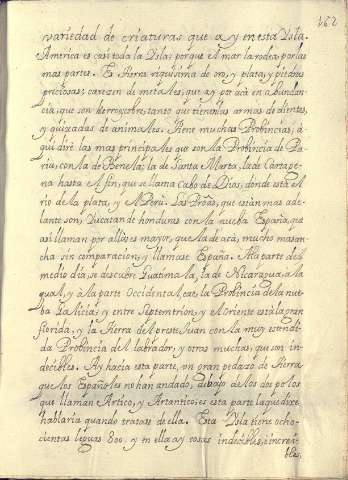 162
variedad de criaturas que ay en esta Ysla.
America es casi toda la Ysla; porque el mar la rodea por las
mas partes. Es tierra riquissima de oro, y plata, y piedras
preciosas; carecen de metales, que ay por acá en abundan
cia, que son hierro, y cobre, tanto que tienen las armas de dientes,
y quixadas de animales. tiene muchas Probincias, a
qui diré las mas principales que son la Probincia de Pa
ria, con la de Benesuela, la de Santa Marta, la de Cartage
na hasta el fin, que se llama Cabo de Dios, donde está el
rio de la plata, y el Perú. Las Proas, que están mas ade
lante son, Yucatan de honduras con la nueba España, que
assi llaman por allá es mayor, que la de acá, mucho mas an
cha sin comparacion, y llamase España. A la parte del
medio dia, se descubre Guatimala, la de Nicaragua, a la
qual, y a la parte Occidental, cae la Probincia de la nue
ba Galicia; y entre Septemtrion, y el Oriente está la gran
florida, y la tierra del preste Juan con la muy estendi
da Probincia del labrador, y otras muchas, que son in
decibles. Ay hacia esta parte, un gran pedazo de tierra
que los Españoles no han andado, debajo de los dos polos
que llaman Artico, y Artantico, es esta parte la que dixe,
hablaria quando tratase de ella. Esta Ysla tiene ocho
cientas leguas 800. y en ella ay cosas indecibles, e increi
bles,